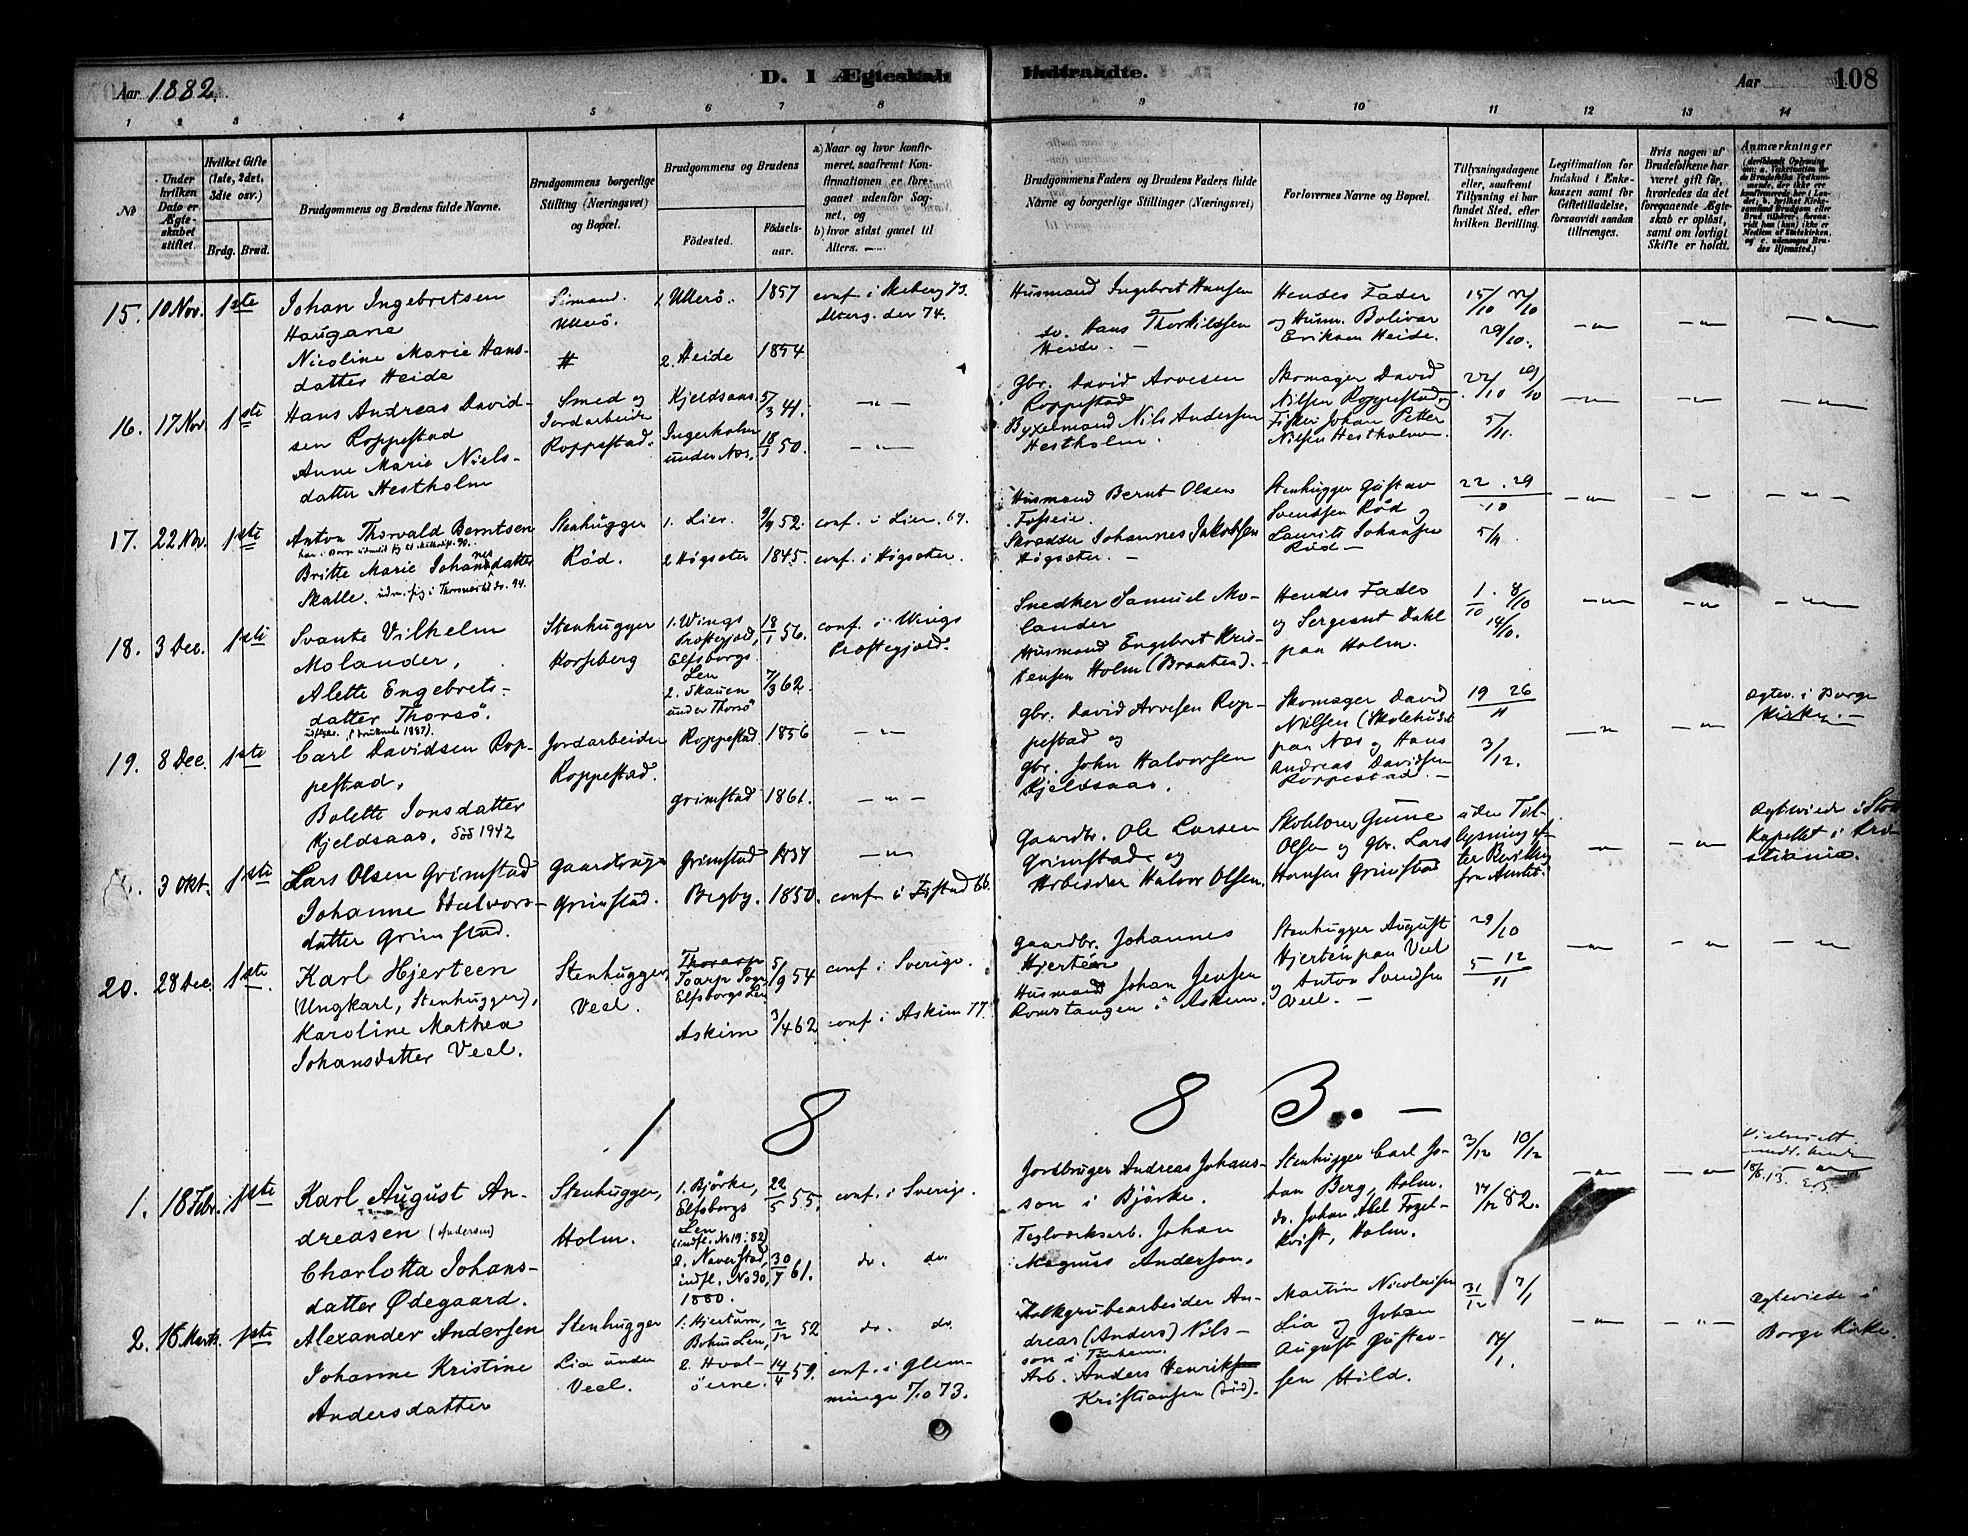 Aar 1882.
D. 1 Ægteskab
Indtraadte.
Aar
108
1 2 3 4 5 6 7 8 9 10 11 12 13 14
No
Under hvilken Dato er Ægteskabet stiftet.
Hvilket Gifte (1ste, 2det, 3die osv.)
Brdg. Brud.
Brudgommens og Brudens fulde Navne.
Brudgommens borgerlige Stilling (Næringsvei) og Bopæl.
Brudgommens og Brudens
Födested.
Födselsaar.
a) Naar og hvor konfirmeret, saafremt Konfirmationen er foregaaet udenfor Sognet, og
b) hvor sidst gaaet til Alters.
Brudgommens Faders og Brudens Faders fulde Navne og borgerlige Stillinger (Næringsvei)
Forlovernes Navne og Bopæl.
Tillysningsdagene eller, saafremt Tillysning ei har fundet Sted, efter hvilken Bevilling.
Legitimation for Indskud i Enkekassen samt for Giftetilladelse, forsaavidt saadan tiltrænges.
Hvis nogen af Brudefolkene har været gift för, hvorledes da det foregaaende Ægteskab er oplöst, samt om lovligt Skifte er holdt.
Anmærkninger
15. 10 Nov. 1ste
Johan Ingebretsen
Haugane
Nicoline Marie Hans-
datter Heide
Sömand.
Ullerö.
1. Ullerö. 1857
2. Heide 1854
conf. i Skeberg 73.
Alterg. der 74.
Husmand Ingebret Hansen
do. Hans Thorkildsen
Heide. —
Hendes Fader
og Husm. Bolivar
Eriksen Heide.
15/10 22/10
29/10.
— " — — " — — " —
16. 17 Nov. 1ste
Hans Andreas David-
sen Roppestad
Anne Marie Niels-
datter Hestholm
Smed og
Jordarbeider
Roppestad.
Kjeldsaas 5/3 41.
Ingerholm
under Næs. 18/1 50.
— " —
— " —
Gbr. David Arvesen
Roppestad
Byxelmand Nils Andersen
Hestholm.
Skomager David
Nilsen Roppestad og
Fisker Johan Petter
Nilsen Hestholmen.
22/10 29/10
5/11.
— " — — " — — " —
17. 22 Nov. 1ste
Anton Thorvald Berntsen
Britte Marie Johannesdatter
Skalle. udm. sig i Thorsnes Md. do. 94.
Stenhugger
Röd.
1. Lier. 9/9 52.
2 Högsæter 1845.
conf. i Lier. 69.
conf. i Högsæter.
Husmand Bernt Olsen
Fosseie.
Skrædder Johannes Jakobsen
Högsæter. —
Stenhugger Gustav
Svendsen Röd og
Laurits Johansen
Röd —
22. 29
10
5/11.
— " — — " — — " —
18. 3 Dec. 1ste
Svante Vilhelm
Molander,
Alette Engebrets-
datter Thorsö.
Stenhugger
Korsberg
1. Wings
Præstegjeld,
Elfsborgs
Len 18/1 56.
2. Skauen
under Thorsö 7/3 62.
conf. i Wings
Præstegjeld.
Snedker Samuel Mo-
lander
Husmand Engebret Kris-
tensen Holm (Braaten).
Hendes Fader
og Sergeant Dahl
paa Holm.
1/10. 8/10
14/10.
— " — — " — — " —
19. 8 Dec. 1ste
Carl Davidsen Rop-
pestad,
Bolette Jonsdatter
Kjeldsaas. död 1942
Jordarbeider
Roppestad.
Roppestad 1856
Grimstad 1861.
— " —
— " —
Gbr. David Arvesen Rop-
pestad og
Gbr. John Halvorsen
Kjeldsaas.
Skomager David
Nilsen (Skolehuset
paa Næs og Hans
Andreas Davidsen
Roppestad. —
19 26
11
3/12.
— " — — " —
Ægtev. i Borge
Kirke. —
3 Okt. 1ste
Lars Olsen Grimstad
Johanne Halvors-
datter Grimstad.
Gaardbruger
Grimstad.
Grimstad 1837
Begby. 1850.
— " —
conf. i Tistad 66.
Gaardbr. Ole Larsen
Grimstad og
Arbeider Halvor Olsen.
Skolelærer Gunne
Olsen og Gbr. Lars
Hansen Grimstad
uden Til-
lysning ef-
ter Bevilling
fra Amtet.
— " — — " —
Ægteviede i Stor
Kapellet i Kri-
stiania.
20. 28 Dec. 1ste.
Karl Hjerteen
(Ungkarl, Stenhugger),
Karoline Mathea
Johansdatter Veel.
Stenhugger,
Veel.
Toarp Sogn
Elfsborgs Len 5/9 54
Askim 3/4 62
conf. i Sverige.
conf. i Askim 77.
Gaardbr. Johannes
Hjertén
Husmand Johan Jensen
Romstangen i Askim.
Stenhugger August
Hjertén paa Veel
og Anton Svendsen
Veel. —
29/10
5 12
11
— " — — " — — " —
1 8 8 3. —
1. 18 Febr. 1ste
Karl August An-
dreasen (Andersen)
Charlotta Johans-
datter Ødegaard.
Stenhugger,
Holm.
1. Björke,
Elfsborgs
Len
(indfl. No 19 : 82) 22/5 55.
2. Naverstad,
indfl. No 30,
1880. 30/7 61.
conf. i Sverige.
do. do.
Jordbruger Andreas Johans-
son i Björke.
Teglværksarb. Johan
Magnus Anderson.
Stenhugger Carl Jo-
han Berg, Holm.
do. Johan Abel Fogel-
kvist, Holm.
3/12 10/12
17/12 82.
— " — — " — — " —
2. 16 Marts. 1ste
Alexander Andersen
Johanne Kristine
Andersdatter
Stenhugger
Lia under
Veel.
1. Hjertum,
Bohus Len, 2/12 52
2. Hval-
öerne. 14/4 59.
do. do.
conf. i Glem-
minge 7/10 73.
Kalkgrubearbeider An-
dreas (Anders) Nils-
son i Tanhem.
Arb. Anders Henrik
Kristiansen (död).
Martin Nicolaisen
Lia og Johan
August Gustav-
sen Hild.
31/12 7/1
14/1.
— " — — " —
Ægteviede i
Borge Kirke.